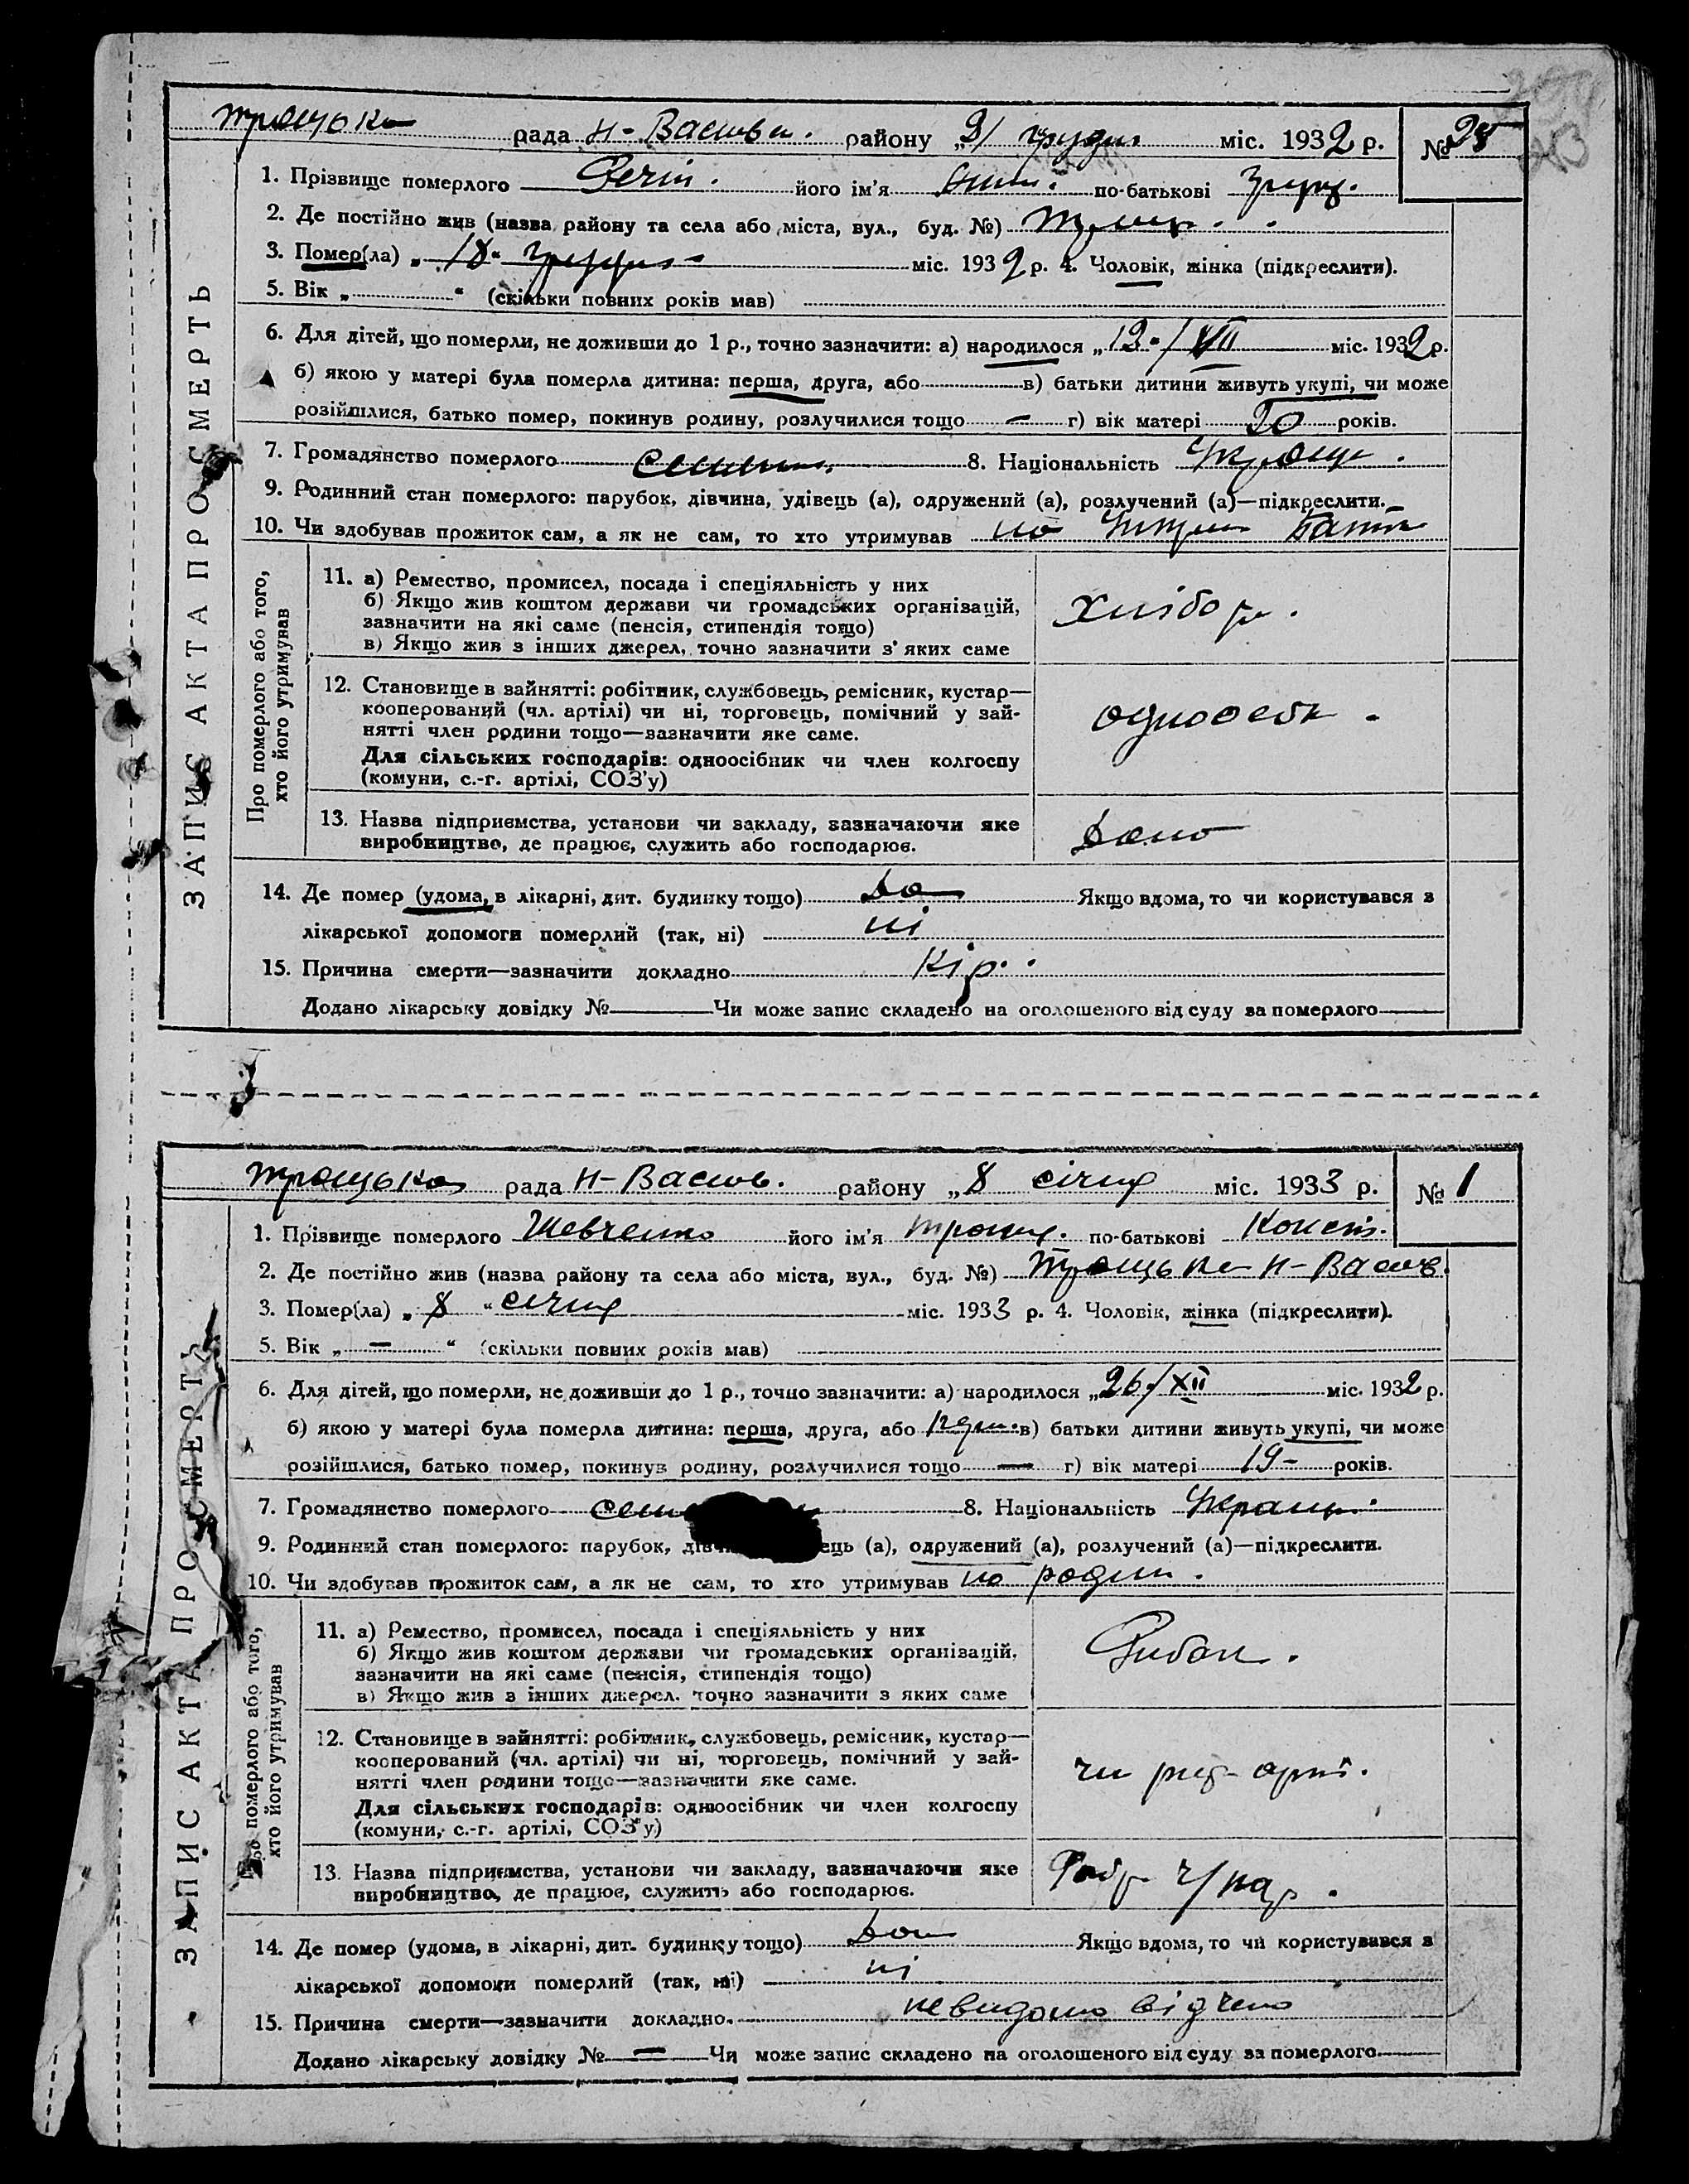 Троцька рада Н-Васильв. району „31 грудня міс. 1932 р. № 25
1. Прізвище померлого його ім'я по-батькові
2. Де постійно жив (назва району та села або міста, вул., буд. №)
3. Помер(ла) „ 18 “ грудня міс. 1932 р. 4. Чоловік, жінка (підкреслити).
5. Вік „ “ (скільки повних років мав)
6. Для дітей, що померли, не доживши до 1 р., точно зазначити: а) народилося „ міс. 1932 р.
б) якою у матері була померла дитина: перша, друга, або в) батьки дитини живуть укупі, чи може
розійшлися, батько помер, покинув родину, розлучилися тощо — г) вік матері років.
7. Громадянство померлого 8. Національність
9. Родинний стан померлого: парубок, дівчина, удівець (а), одружений (а), розлучений (а)—підкреслити.
10. Чи здобував прожиток сам, а як не сам, то хто утримував
Про померлого або того,
хто його утримував
11. а) Ремество, промисел, посада і спеціяльність у них
б) Якщо жив коштом держави чи громадських організацій,
зазначити на які саме (пенсія, стипендія тощо)
в) Якщо жив з інших джерел, точно зазначити з яких саме
хлібор.
12. Становище в зайнятті: робітник, службовець, ремісник, кустар—
кооперований (чл. артілі) чи ні, торговець, помічний у зай-
нятті член родини тощо—зазначити яке саме.
Для сільських господарів: одноосібник чи член колгоспу
(комуни, с.-г. артілі, СОЗ'у)
13. Назва підприємства, установи чи закладу, зазначаючи яке
виробництво, де працює, служить або господарює.
14. Де помер (удома, в лікарні, дит. будинку тощо) Якщо вдома, то чи користувався з
лікарської допомоги померлий (так, ні) ні
15. Причина смерти—зазначити докладно кір.
Додано лікарську довідку № Чи може запис складено на оголошеного від суду за померлого
ЗАПИС АКТА ПРО СМЕРТЬ
Троцька рада Н-Васильв. району „8 січня міс. 1933 р. № 1
1. Прізвище померлого Шевченко його ім'я по-батькові Конст.
2. Де постійно жив (назва району та села або міста, вул., буд. №) Троцьке Н-Васил.
3. Помер(ла) „ 8 “ січня міс. 1933 р. 4. Чоловік, жінка (підкреслити).
5. Вік „ — “ (скільки повних років мав)
6. Для дітей, що померли, не доживши до 1 р., точно зазначити: а) народилося „26/XII міс. 1932 р.
б) якою у матері була померла дитина: перша, друга, або перш. в) батьки дитини живуть укупі, чи може
розійшлися, батько помер, покинув родину, розлучилися тощо — г) вік матері 19 - років.
7. Громадянство померлого 8. Національність Україн.
9. Родинний стан померлого: парубок, ець (а), одружений (а), розлучений (а)—підкреслити.
10. Чи здобував прожиток сам, а як не сам, то хто утримував но родит.
Про померлого або того,
хто його утримував
11. а) Ремество, промисел, посада і спеціяльність у них
б) Якщо жив коштом держави чи громадських організацій,
зазначити на які саме (пенсія, стипендія тощо)
в) Якщо жив з інших джерел, точно зазначити з яких саме
Рибак.
12. Становище в зайнятті: робітник, службовець, ремісник, кустар—
кооперований (чл. артілі) чи ні, торговець, помічний у зай-
нятті член родини тощо—зазначити яке саме.
Для сільських господарів: одноосібник чи член колгоспу
(комуни, с.-г. артілі, СОЗ'у)
13. Назва підприємства, установи чи закладу, зазначаючи яке
виробництво, де працює, служить або господарює.
14. Де помер (удома, в лікарні, дит. будинку тощо) Якщо вдома, то чи користувався з
лікарської допомоги померлий (так, ні) ні
15. Причина смерти—зазначити докладно. невидомо від чего
Додано лікарську довідку № — Чи може запис складено на оголошеного від суду за померлого
ЗАПИС АКТА ПРО СМЕРТЬ